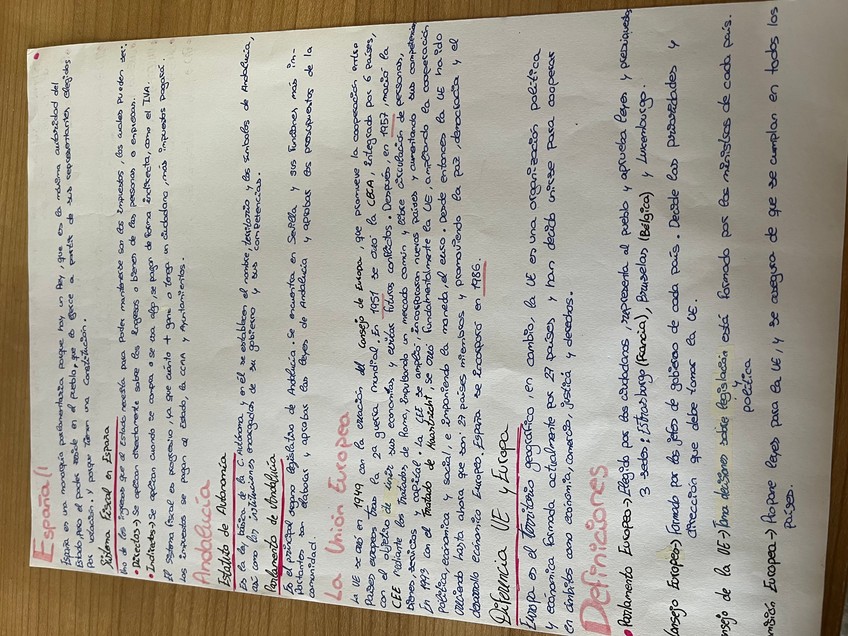 España (I
España es una monarquía parlamentaria porque hay un Rey, que es la máxima autoridad del
Estado, pero el poder reside en el pueblo, que lo ejerce a partir de sus representantes, elegidos
por votación y porque tienen una Constitución.
Sistema Fiscal en España
Uno de los ingresos que el Estado necesita para poder mantenerse son los impuestos, los cuales pueden ser:
• Directos→ Se aplican directamente sobre los ingresos o bienes de las personas o empresas.
• Indirectos→ Se aplican cuando se compra o se usa algo, se pagan de forma indirecta, como el IVA.
El sistema fiscal es progresivo, ya que cuánto + gane o tenga un ciudadano, más impuestos pagará.
Los impuestos se pagan al Estado, la CCAA y Ayuntamientos.
Andalucía
Estatuto de Autonomía
Es la ley básica de la C. Autónoma y en él se establecen el nombre, territorio y los símbolos de Andalucía,
así como las instituciones encargadas de su gobierno y sus competencias.
Parlamento de Andalucía
Es el principal órgano legislativo de Andalucía. Se encuentra en Sevilla y sus funciones más im-
portantes son elaborar y aprobar las leyes de Andalucía y aprobar los presupuestos de la
comunidad.
La Unión Europea
La UE se creó en 1949 con la creación del Consejo de Europa, que promueve la cooperación entre
países europeos tras la 2ª guerra mundial. En 1951 se creó la CECA, integrado por 6 países,
con el objetivo de unir sus economías y evitar futuros conflictos. Después, en 1957, nació la
CEE mediante los Tratados de Roma, impulsando un mercado común y libre circulación de personas,
bienes, servicios y capital. La CEE se amplió, incorporaron nuevos países y aumentando sus competencias
En 1993 con el Tratado de Maastricht, se creó fundamentalmente la UE, ampliando la cooperación
política, económica y social, e imponiendo la moneda, el euro. Desde entonces la UE ha ido
creciendo hasta ahora que son 27 países miembros y promoviendo la paz, democracia y el
desarrollo económico Europeo. España se incorporó en 1986.
Diferencia UE y Europa
Europa es el territorio geográfico, en cambio, la UE es una organización política
y económica formada actualmente por 27 países y han decido unirse para cooperar
en ámbitos como economía, comercio, justicia y derechos.
Definiciones
• Parlamento Europeo→ Elegido por los ciudadanos, representa al pueblo y aprueba leyes y presupuestos
3 sedes: Estrasburgo (Francia), Bruselas (Bélgica) y Luxemburgo.
Consejo Europeo→ Formado por los jefes de gobierno de cada país. Decide las prioridades y
dirección que debe tomar la UE.
nsejo de la UE→ Toma decisiones sobre legislación está formado por los ministros de cada país.
y
política
misión Europea→ Propone leyes para la UE, y se asegura de que se cumplan en todos los
países.